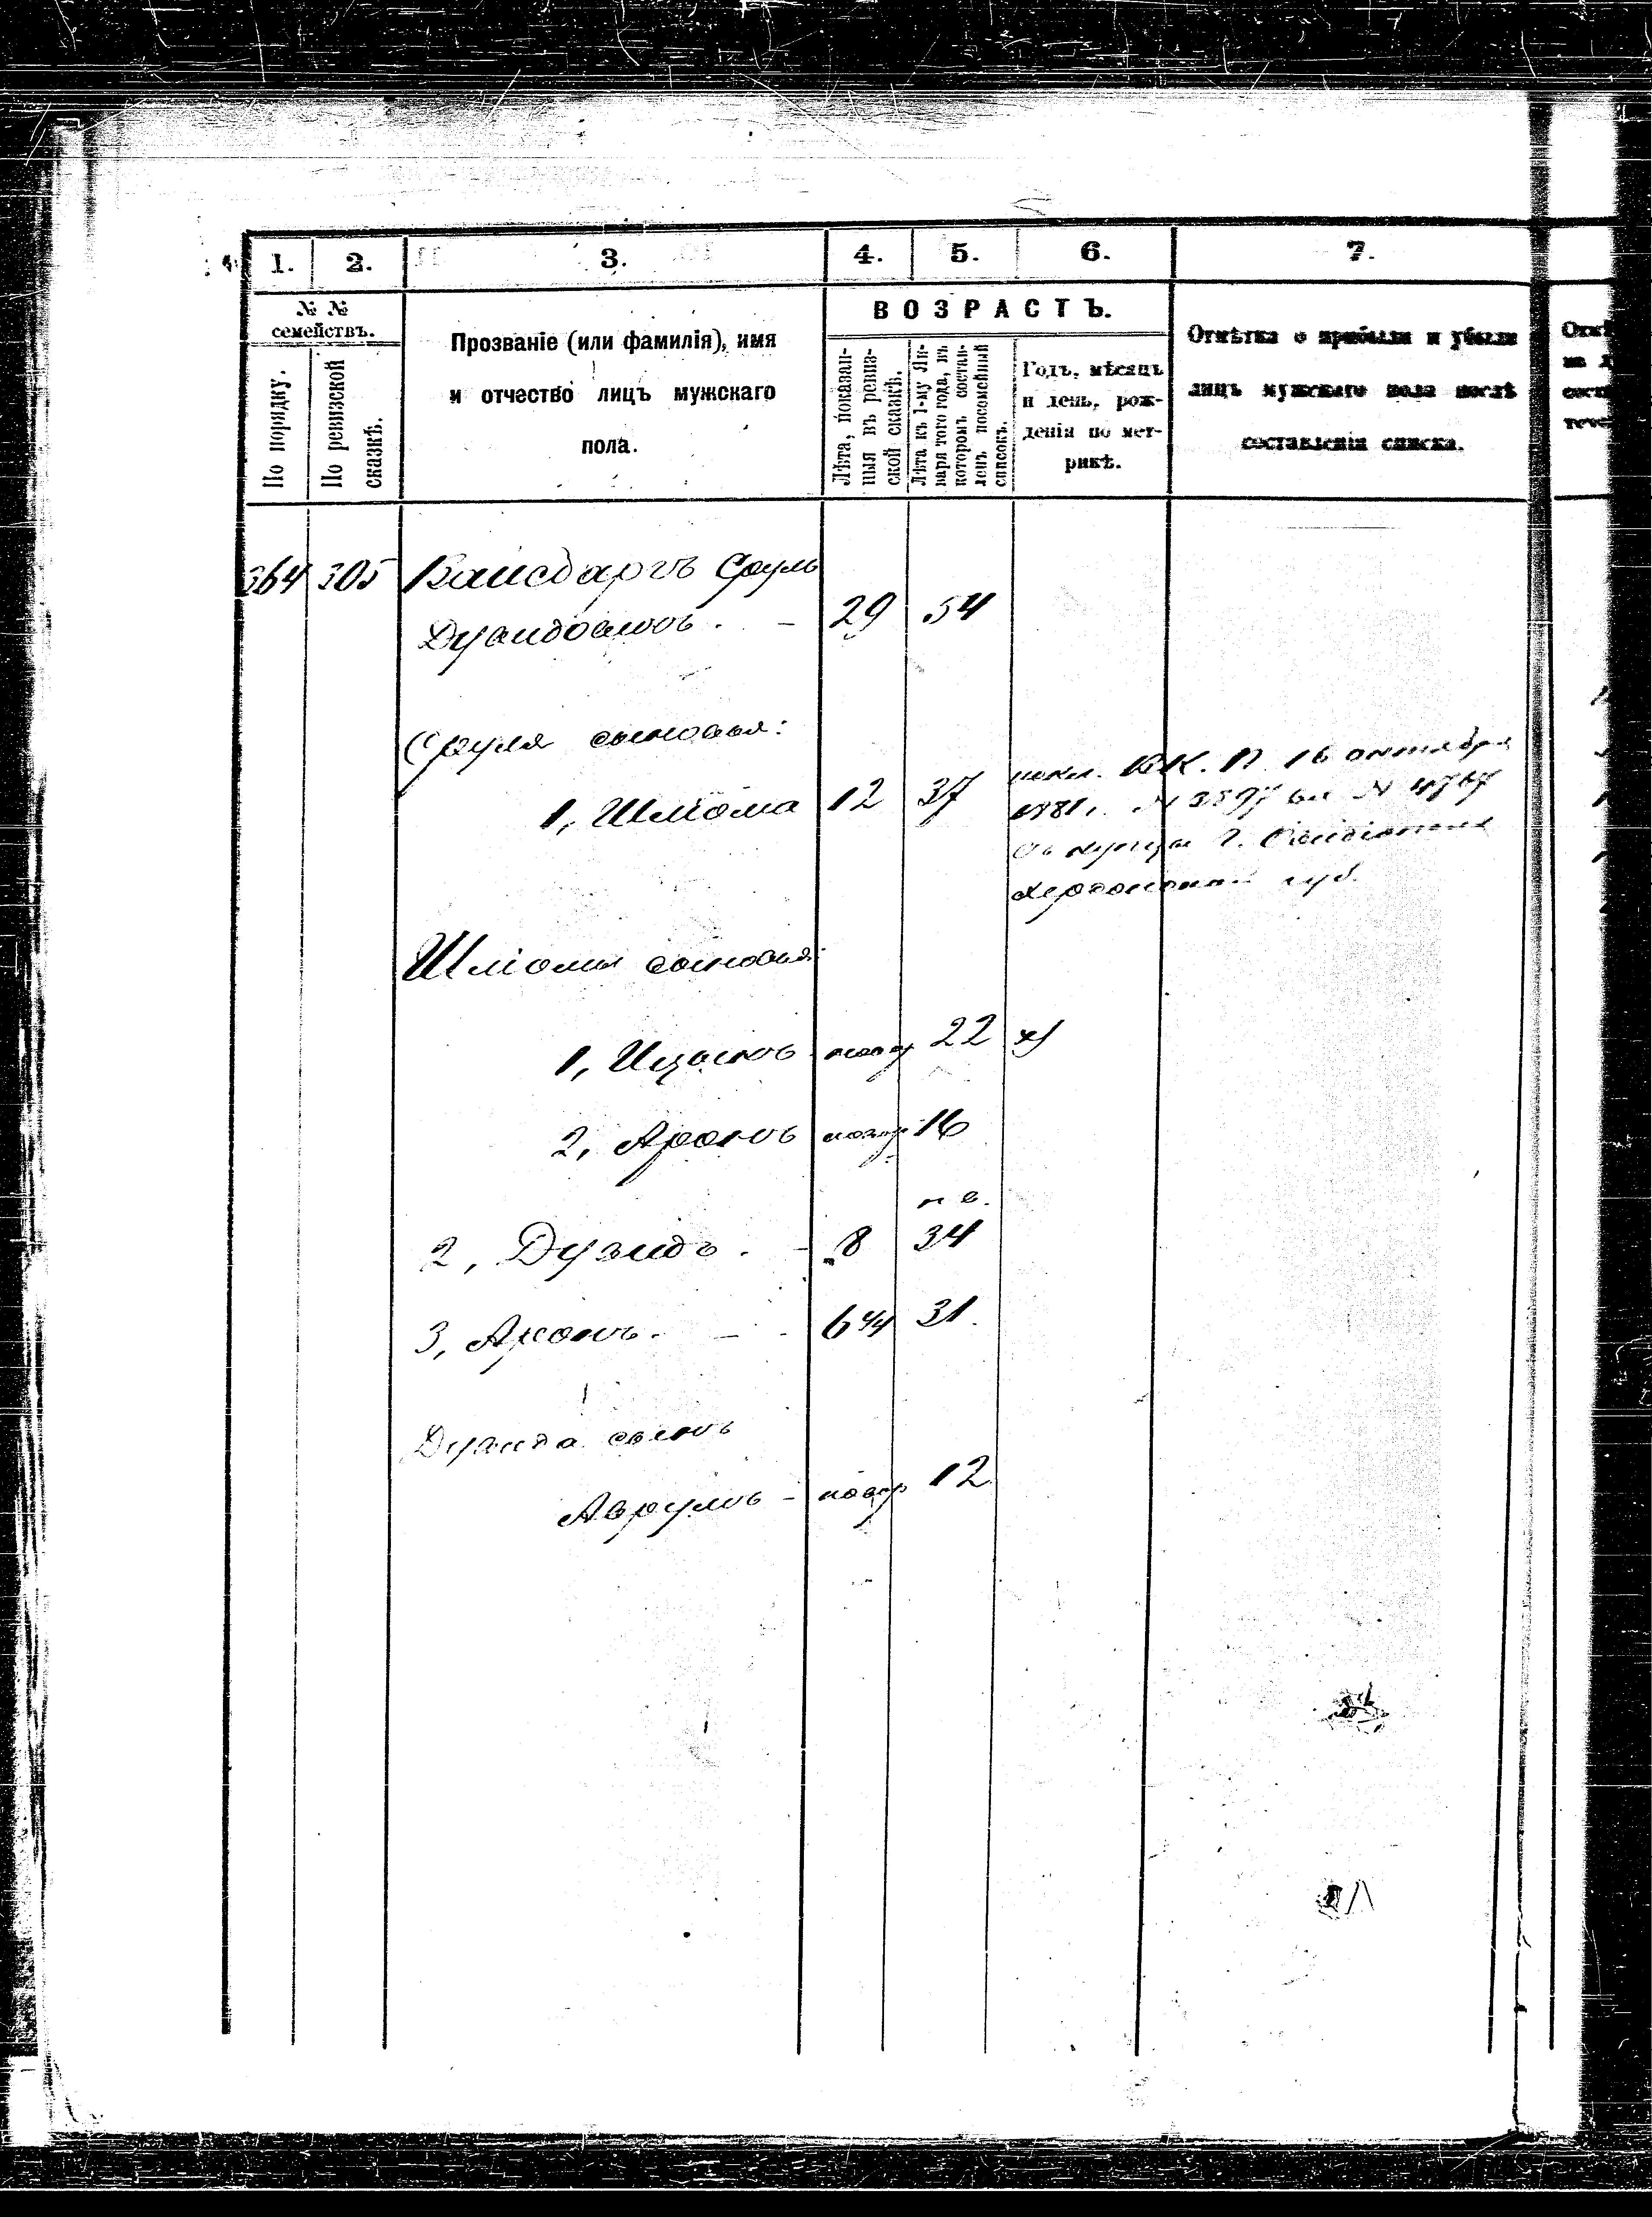 1. 2. 3. 4. 5. 6. 7.
№ №
семействъ.
По порядку.
По ревизской
сказкѣ.
Прозваніе (или фамилія), имя
и отчество лицъ мужскаго
пола.
ВОЗРАСТЪ.
Лѣта, показан-
ныя въ ревиз-
ской сказкѣ.
Лѣта къ 1-му Ян-
варя того года, въ
которомъ состав-
ленъ посемейный
списокъ.
Годъ, мѣсяцъ
и день, рож-
денія по мет-
рикѣ.
Отмѣтка о прибыли и убыли
лицъ мужскаго пола послѣ
составленія списка.
364 305 Вайсбергъ Сруль
29 54
Сруля сыновья:
1, Шліома 12 37
16 октября
1881 г. №
купцы г.
Херсонской губ.
Шліомы сыновья:
1, Ицыкъ новор 22 х)
2, Аронъ новор 16
п в.
2, Дувидъ. - 8 34
3, Аронъ. - 31.
Дувида сынъ
Аврумъ - новор 12